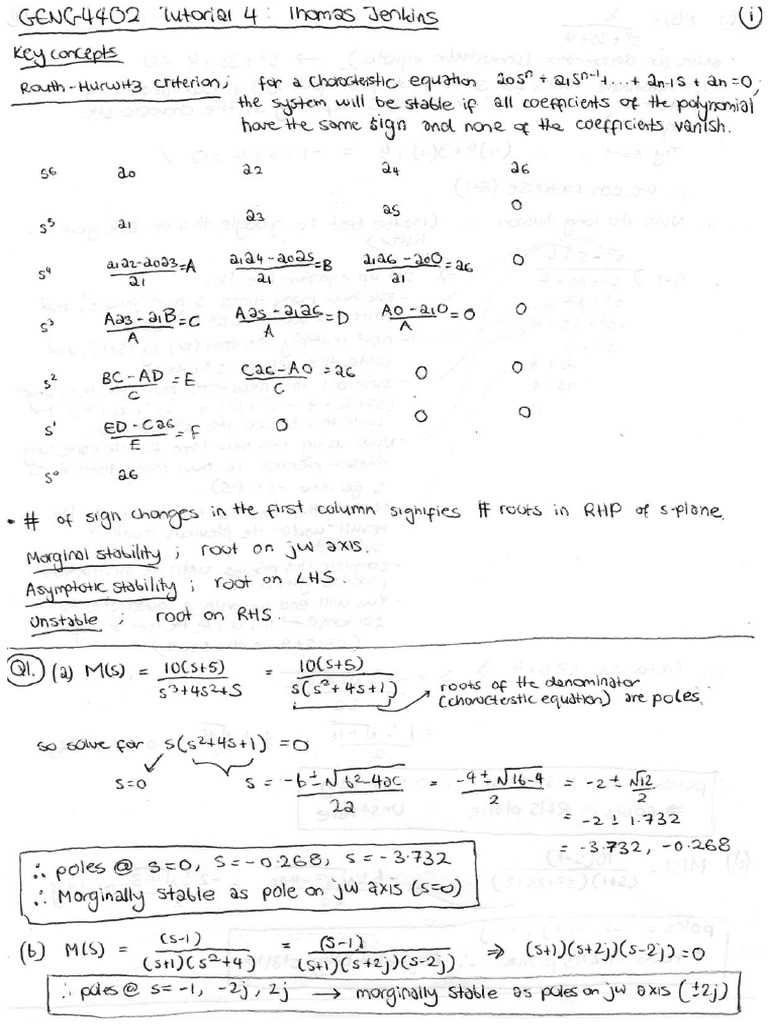 GENG4402 Tutorial 4: Thomas Jenkins (i)
Key concepts
Routh-Hurwitz criterion; for a characteristic equation a0sⁿ + a1sⁿ⁻¹ + ... + an-1s + an = 0,
the system will be stable if all coefficients of the polynomial
have the same sign and none of the coefficients vanish.
s⁶ a0 a2 a4 a6
s⁵ a1 a3 a5 0
s⁴ (a1a2-a0a3)/a1 = A (a1a4-a0a5)/a1 = B (a1a6-a00)/a1 = a6 0
s³ (Aa3-a1B)/A = C (Aa5-a1a6)/A = D (A0-a10)/A = 0 0
s² (BC-AD)/C = E (Ca6-A0)/C = a6 0 0
s¹ (ED-Ca6)/E = F 0 0 0
s⁰ a6
• # of sign changes in the first column signifies # roots in RHP of s-plane.
Marginal stability; root on jw axis.
Asymptotic stability; root on LHS.
Unstable; root on RHS.
Q1. (a) M(s) = 10(s+5)/(s³+4s²+s) = 10(s+5)/(s(s²+4s+1)) → roots of the denominator
(characterstic equation) are poles.
so solve for s(s²+4s+1) = 0
s=0 s = (-b±√(b²-4ac))/2a = (-4±√(16-4))/2 = -2 ± √12/2
= -2 ± 1.732
= -3.732, -0.268
∴ poles @ s=0, s=-0.268, s=-3.732
∴ Marginally stable as pole on jw axis (s=0)
(b) M(s) = (s-1)/((s+1)(s²+4)) = (s-1)/((s+1)(s+2j)(s-2j)) ⇒ (s+1)(s+2j)(s-2j)=0
∴ poles @ s= -1, -2j, 2j → marginally stable as poles on jw axis (±2j)